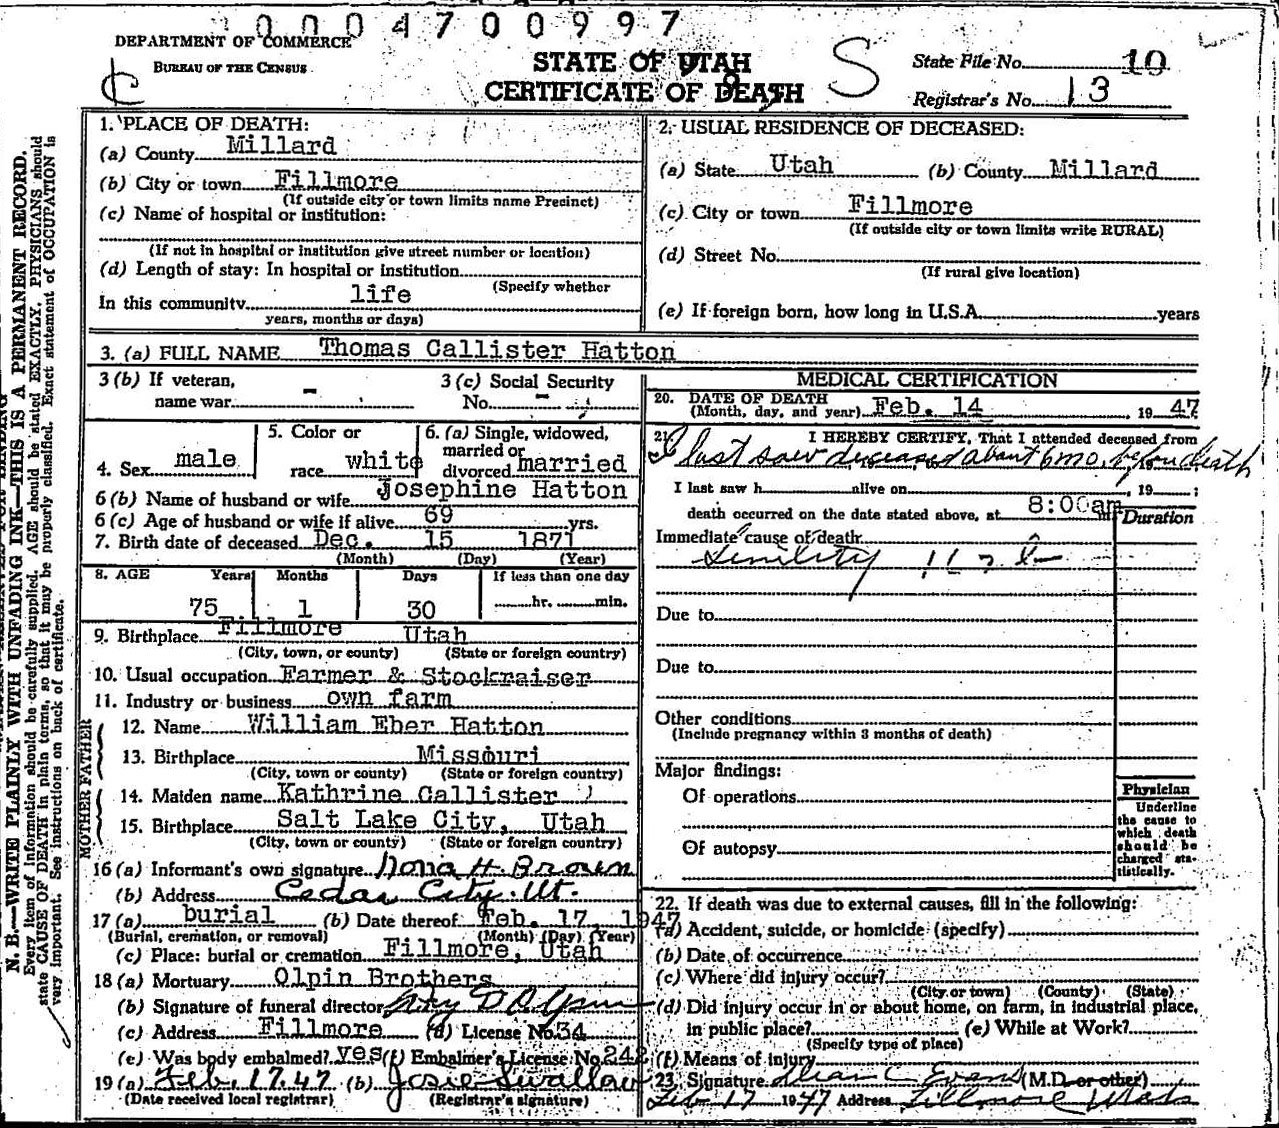 0004700997
DEPARTMENT OF COMMERCE
BUREAU OF THE CENSUS
STATE OF UTAH
CERTIFICATE OF DEATH
S
State File No. 10
Registrar's No. 13
1. PLACE OF DEATH:
(a) County Millard
(b) City or town Fillmore
(If outside city or town limits name Precinct)
(c) Name of hospital or institution:
(If not in hospital or institution give street number or location)
(d) Length of stay: In hospital or institution
(Specify whether
In this community life
years, months or days)
2. USUAL RESIDENCE OF DECEASED:
(a) State Utah (b) County Millard
(c) City or town Fillmore
(If outside city or town limits write RURAL)
(d) Street No.
(If rural give location)
(e) If foreign born, how long in U.S.A. years
3. (a) FULL NAME Thomas Callister Hatton
3 (b) If veteran, name war -
3 (c) Social Security No. -
4. Sex male
5. Color or race white
6. (a) Single, widowed, married or divorced married
6 (b) Name of husband or wife Josephine Hatton
6 (c) Age of husband or wife if alive 69 yrs.
7. Birth date of deceased Dec. 15 1871
(Month) (Day) (Year)
8. AGE Years Months Days If less than one day
75 1 30 hr. min.
9. Birthplace Fillmore Utah
(City, town, or county) (State or foreign country)
10. Usual occupation Farmer & Stockraiser
11. Industry or business own farm
FATHER
12. Name William Eber Hatton
13. Birthplace Missouri
(City, town or county) (State or foreign country)
MOTHER
14. Maiden name Kathrine Callister
15. Birthplace Salt Lake City, Utah
(City, town or county) (State or foreign country)
16 (a) Informant's own signature Nona H. Brown
(b) Address Cedar City. Ut.
17 (a) burial (b) Date thereof Feb. 17, 1947
(Burial, cremation, or removal) (Month) (Day) (Year)
(c) Place: burial or cremation Fillmore, Utah
18 (a) Mortuary Olpin Brothers
(b) Signature of funeral director
(c) Address Fillmore (d) License No. 34
(e) Was body embalmed? yes (f) Embalmer's License No. 248
19 (a) Feb. 17. 47 (b) Josie Swallow
(Date received local registrar) (Registrar's signature)
MEDICAL CERTIFICATION
20. DATE OF DEATH
(Month, day, and year) Feb. 14, 1947
21. I HEREBY CERTIFY, That I attended deceased from
I last saw deceased about 6 mo. before death
I last saw h alive on , 19 ;
death occurred on the date stated above, at 8:00am m. Duration
Immediate cause of death
Senility
Due to
Due to
Other conditions
(Include pregnancy within 3 months of death)
Major findings:
Of operations
Of autopsy
Physician
Underline
the cause to
which death
should be
charged sta-
tistically.
22. If death was due to external causes, fill in the following:
(a) Accident, suicide, or homicide (specify)
(b) Date of occurrence
(c) Where did injury occur?
(City or town) (County) (State)
(d) Did injury occur in or about home, on farm, in industrial place,
in public place? (e) While at Work?
(Specify type of place)
(f) Means of injury
23. Signature Dean C Evans (M.D. or other)
Feb 17 1947 Address Fillmore Utah
N. B.—WRITE PLAINLY WITH UNFADING INK—THIS IS A PERMANENT RECORD.
Every item of information should be carefully supplied. AGE should be stated EXACTLY. PHYSICIANS should
state CAUSE OF DEATH in plain terms, so that it may be properly classified. Exact statement of OCCUPATION is
very important. See instructions on back of certificate.